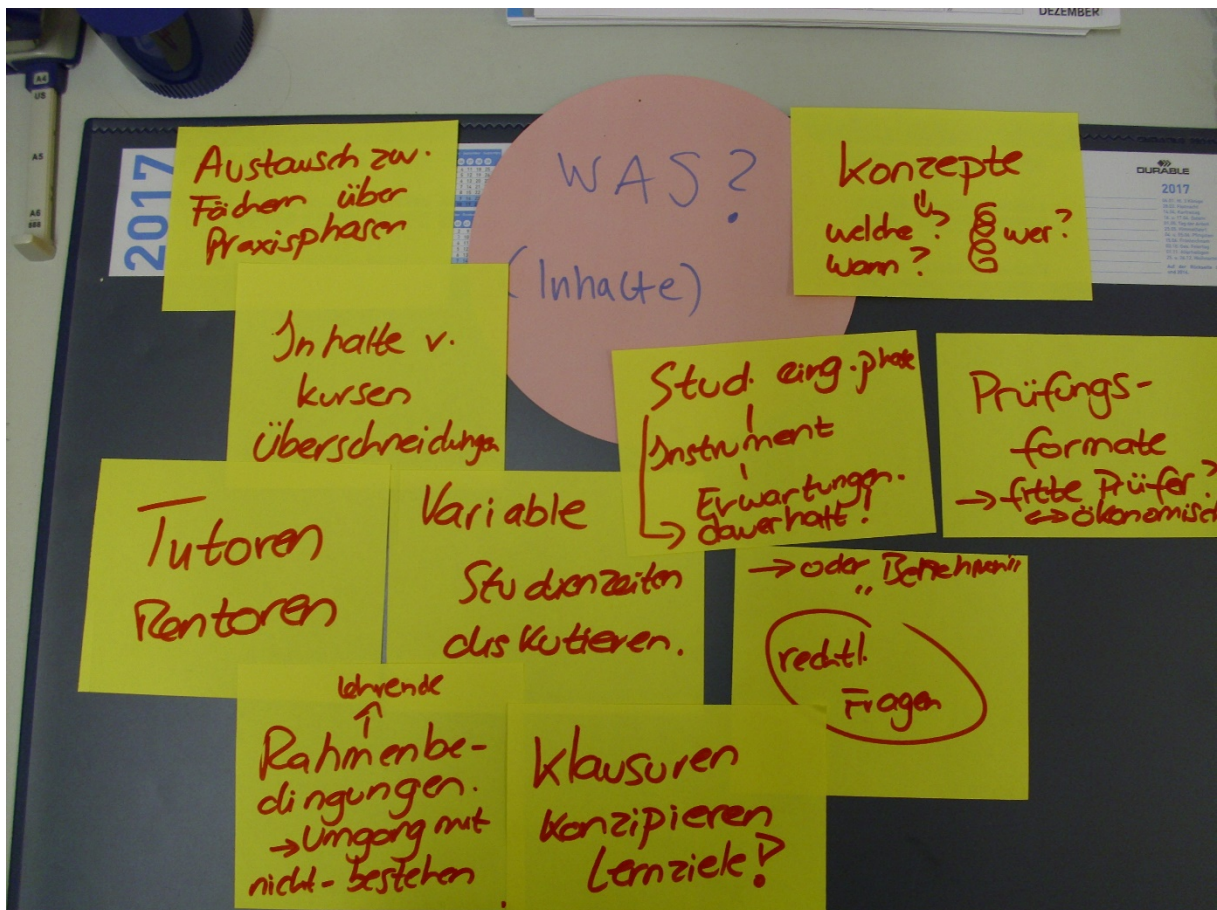 DEZEMBER
A4
A5
A6
2017
DURABLE
2017
WAS?
(Inhalte)
Austausch zw.
Fächern über
Praxisphasen
Konzepte
welche?
wann?
wer?
Inhalte v.
kursen
Überschneidungen
Stud. eing.phase
Instrument
Erwartungen.
dauerhaft!
Prüfungs-
formate
→ fitte Prüfer?
↔ ökonomisch
Tutoren
Mentoren
Variable
Studienzeiten
diskutieren.
→ oder
rechtl.
Fragen
lehrende
Rahmenbe-
dingungen.
→ Umgang mit
nicht-bestehen
Klausuren
konzipieren
Lernziele!